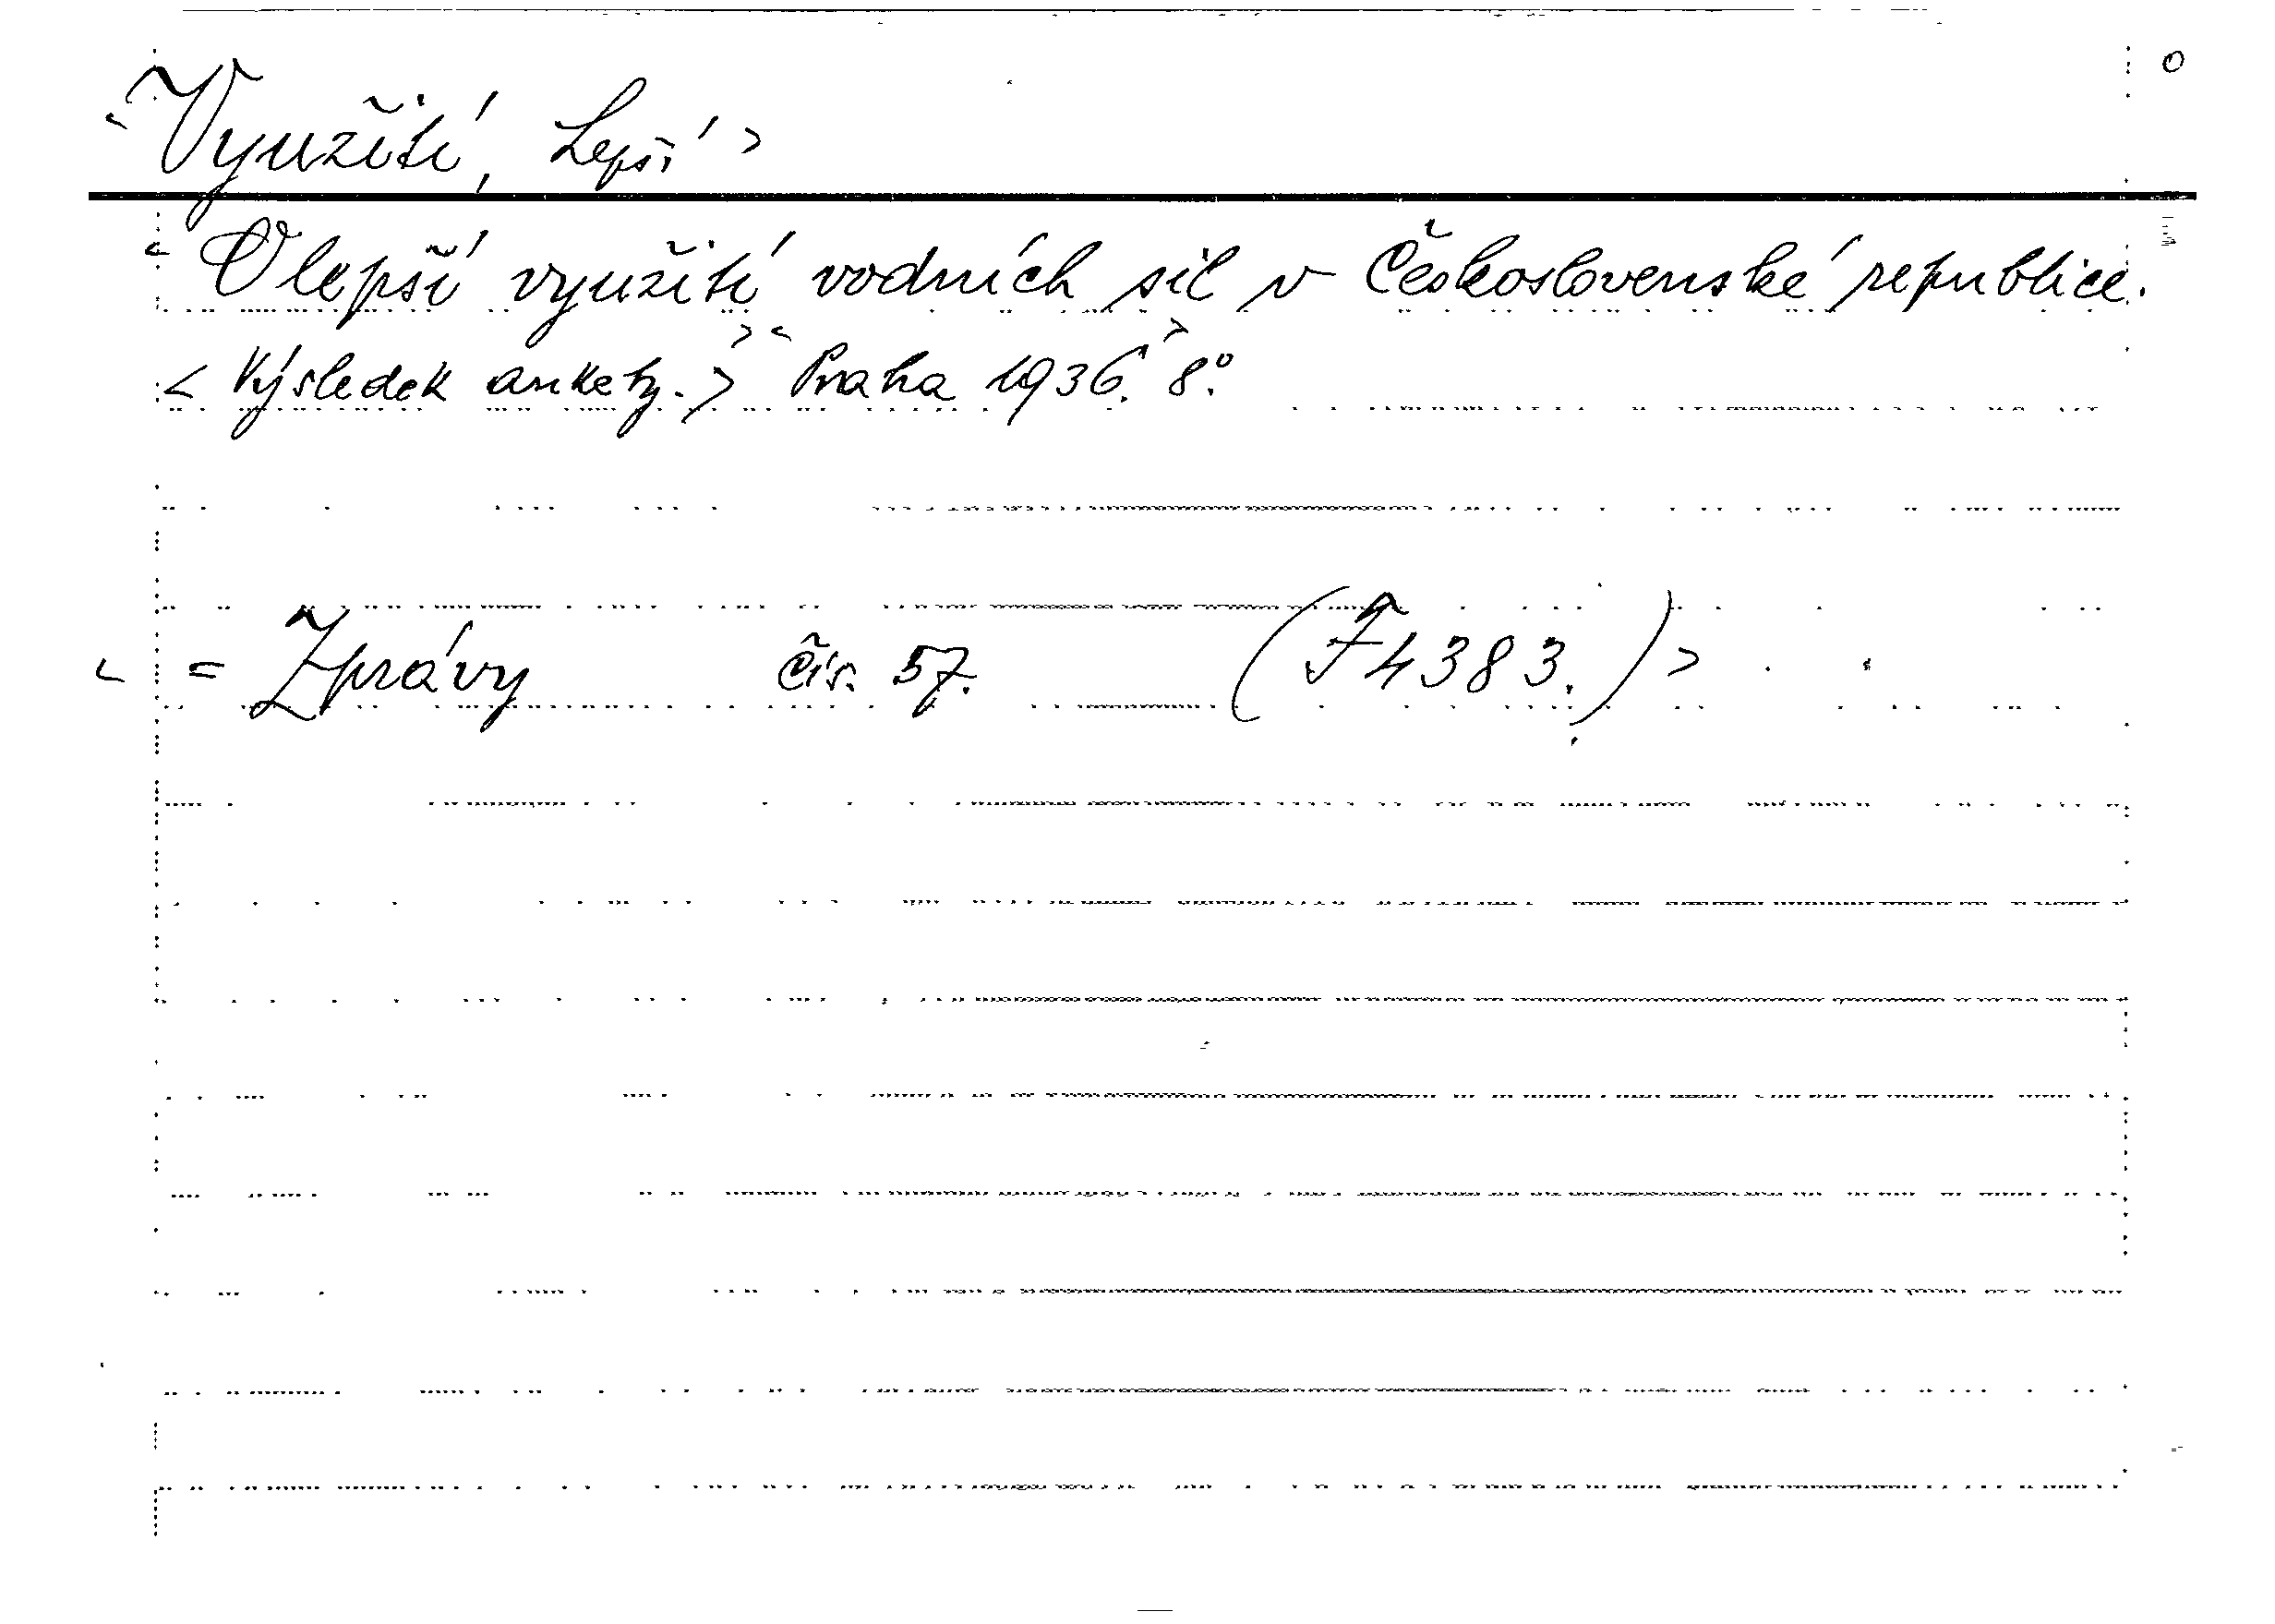 o
<Využití, Lepší>
<O lepší využití vodních sil v Československé republice.
<Výsledek ankety.>> <Praha 1936.> 8°.
< = Zprávy čís. 57. (F 4383.)>